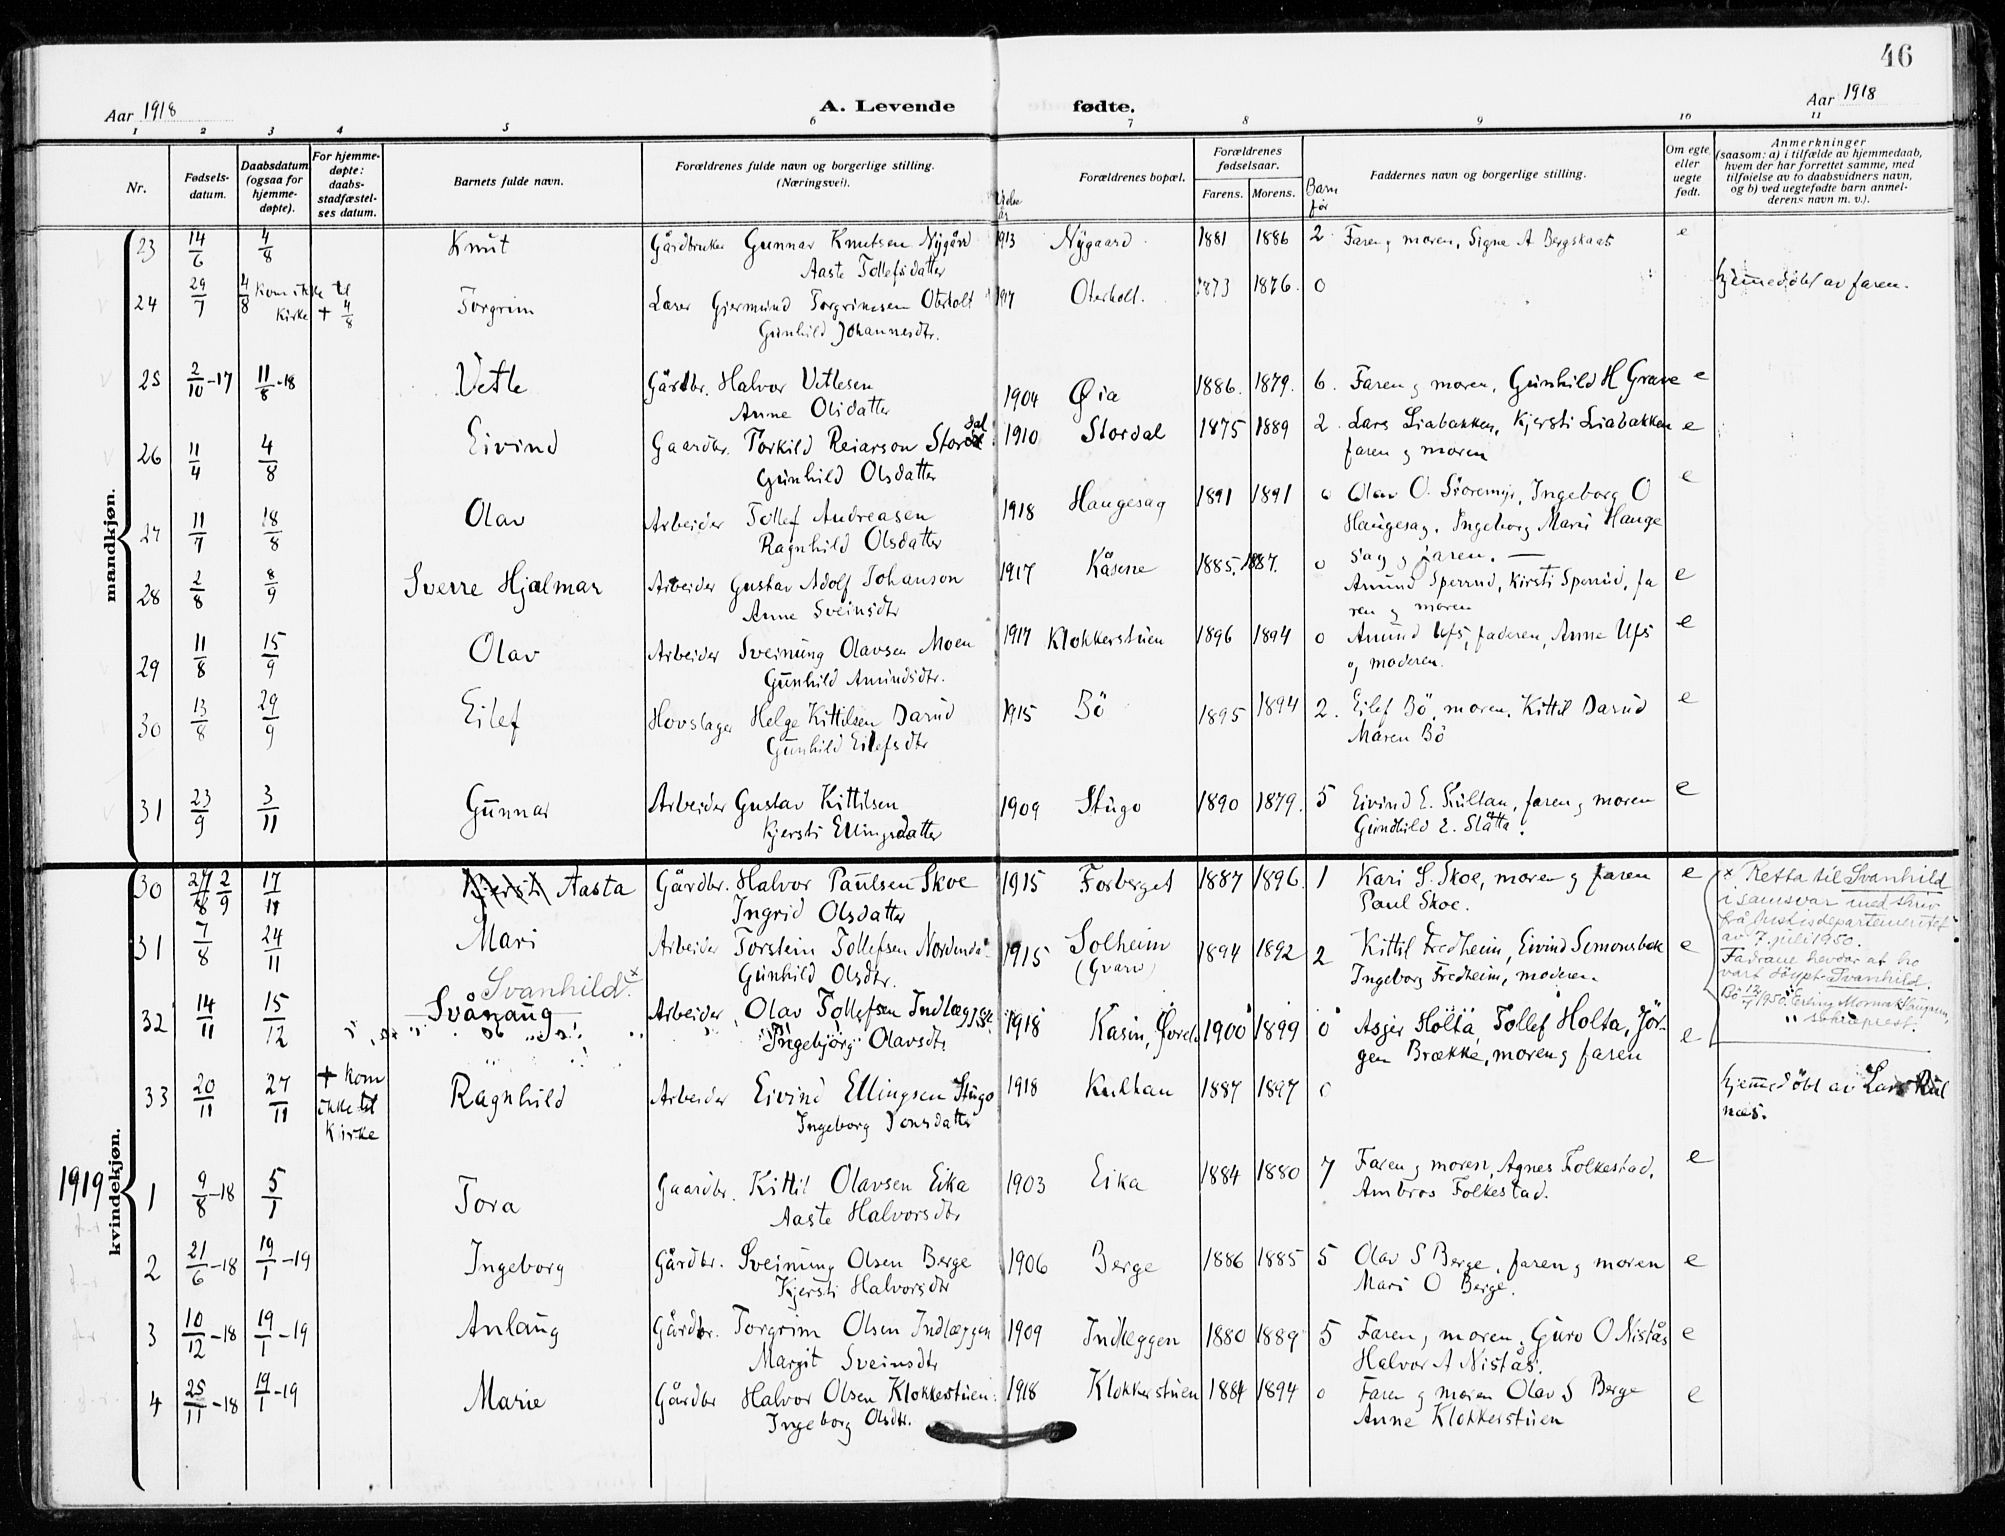 46
Aar 1918
A. Levende fødte.
Aar 1918
1 2 3 4 5 6 7 8 9 10 11
Nr.
Fødsels-
datum.
Daabsdatum
(ogsaa for
hjemme-
døpte).
For hjemme-
døpte:
daabs-
stadfæstel-
ses datum.
Barnets fulde navn.
Forældrenes fulde navn og borgerlige stilling.
(Næringsvei).
Forældrenes bopæl.
Forældrenes
fødselsaar.
Farens. Morens.
Barn
før
Faddernes navn og borgerlige stilling.
Om egte
eller
uegte
født.
Anmerkninger
(saasom: a) i tilfælde av hjemmedaab,
hvem der har forrettet samme, med
tilføielse av to daabsvidners navn,
og b) ved uegtefødte barn anmel-
derens navn m. v.).
mandkjøn.
23 14/6 4/8 Knut Gårdbruker Gunnar Knutsen Nygård 1913 Nygaard 1881 1886 2 Faren, moren, Signe A Bergskaas e
Aaste Tollefsdatter
24 29/7 4/8 Kom ikke til Torgrim Lærer Gjermund Torgrimsen Oterholt 1917 Oterholt. 1873 1876. 0 hjemmedøbt av faren.
Kirke + 4/8 Gunhild Johannesdtr.
25 2/10-17 11/8-18 Vetle Gårdbr. Halvor Vetlesen 1904 Øia 1886. 1879. 6. Faren og moren, Gunhild H Grave e
Anne Olsdatter
26 11/4 4/8 Eivind Gaardbr. Torkild Reiarson Stordal 1910 Stordal 1875 1889 2. Lars Liabakken, Kjersti Liabakken e
Gunhild Olsdatter faren og moren
27 11/7 18/8 Olav Arbeider Tollef Andreasen 1918 Haugesag 1891 1891 0 Olav O. Ingeborg O e
Ragnhild Olsdatter Haugesag, Ingeborg Marie Hauge
sag og faren.
28 2/8 8/9 Sverre Hjalmar Arbeider Gustav Adolf Johanson 1917 Kåsene 1885. 1887. 0 Amund Sperrud, Kirsti Sperrud, fa e
Anne Sveinsdtr ren og moren
29 11/8 15/9 Olav Arbeider Sveinung Olavsen Moen 1917 Klokkerstuen 1896 1894 0 Amund Ufs, faderen, Anne Ufs e
Gunhild Amundsdtr. og moderen.
30 13/8 29/9 Eilef Hovslager Helge Kittilsen Darud 1915 Bö 1895 1894 2. Eilef Bö, moren, Kittil Darud e
Gunhild Eilefsdtr Maren Bö
31 23/9 3/11 Gunnar Arbeider Gustav Kittilsen 1909 Stugo 1890 1879. 5 Eivind E. Kultan, faren og moren e
Kjersti Ellingsdatter Gundhild E. Slåtta.
kvindekjøn.
30 27/8 2/9 17/11 Kjersti Aasta Gårdbr. Halvor Paulsen Skoe 1915 Forberget 1887 1896. 1 Kari S. Skoe, moren og faren e
Ingrid Olsdatter Paul Skoe.
x Retta til Svanhild
i samsvar med skriv
frå Justisdepartementet
av 7. juli 1950.
Fadrane hevdar at ho
vart döypt Svanhild.
Bö 12/7 1950. Erling
sokneprest.
31 7/8 24/11 Mari Arbeider Torstein Tollefsen Nordendå 1915 Solheim 1894 1892 2 Kittil Fredheim, Eivind Simonsbak e
Gunhild Olsdtr. (Gvarv) Ingeborg Fredheim, moderen.
Svanhild x
32 14/11 15/12 Svånaug Arbeider Olav Tollefsen Indlæggstr. 1918 Kåsin, 1900 1899 0 Asger Holta, Tollef Holta, Jör- e
Ingebjørg Olavsdtr gen Brække, moren og faren
33 20/11 27/11 + kom Ragnhild Arbeider Eivind Ellingsen Stugo 1918 Kultan 1887 1897 0 hjemmedøbt av Lars
ikke til Ingeborg Jonsdatter
Kirke
næs.
1919
1 9/8-18 5/1 Tora Gaardbr. Kittil Olavsen Eika 1903 Eika 1884 1880 7 Faren og moren, Agnes Folkestad, e
Aaste Halvorsdtr Ambros Folkestad.
2 21/6-18 19/1-19 Ingeborg Gårdbr. Sveinung Olsen Berge 1906 Berge 1886 1885 5 Olav S Berge, faren og moren e
Kjersti Halvorsdtr Mari O Berge.
3 10/12-18 19/1-19 Anlaug Gårdbr. Torgrim Olsen Indlæggen 1909 Indlæggen 1880 1889 5 Faren, moren, Guro O Nistås e
Margit Sveinsdtr Halvor A Nistås.
4 25/11-18 19/1-19 Marie Gårdbr Halvor Olsen Klokkerstuen. 1918 Klokkerstuen 1884 1894 0 Faren og moren Olav S Berge e
Ingeborg Olsdtr. Anne Klokkerstuen